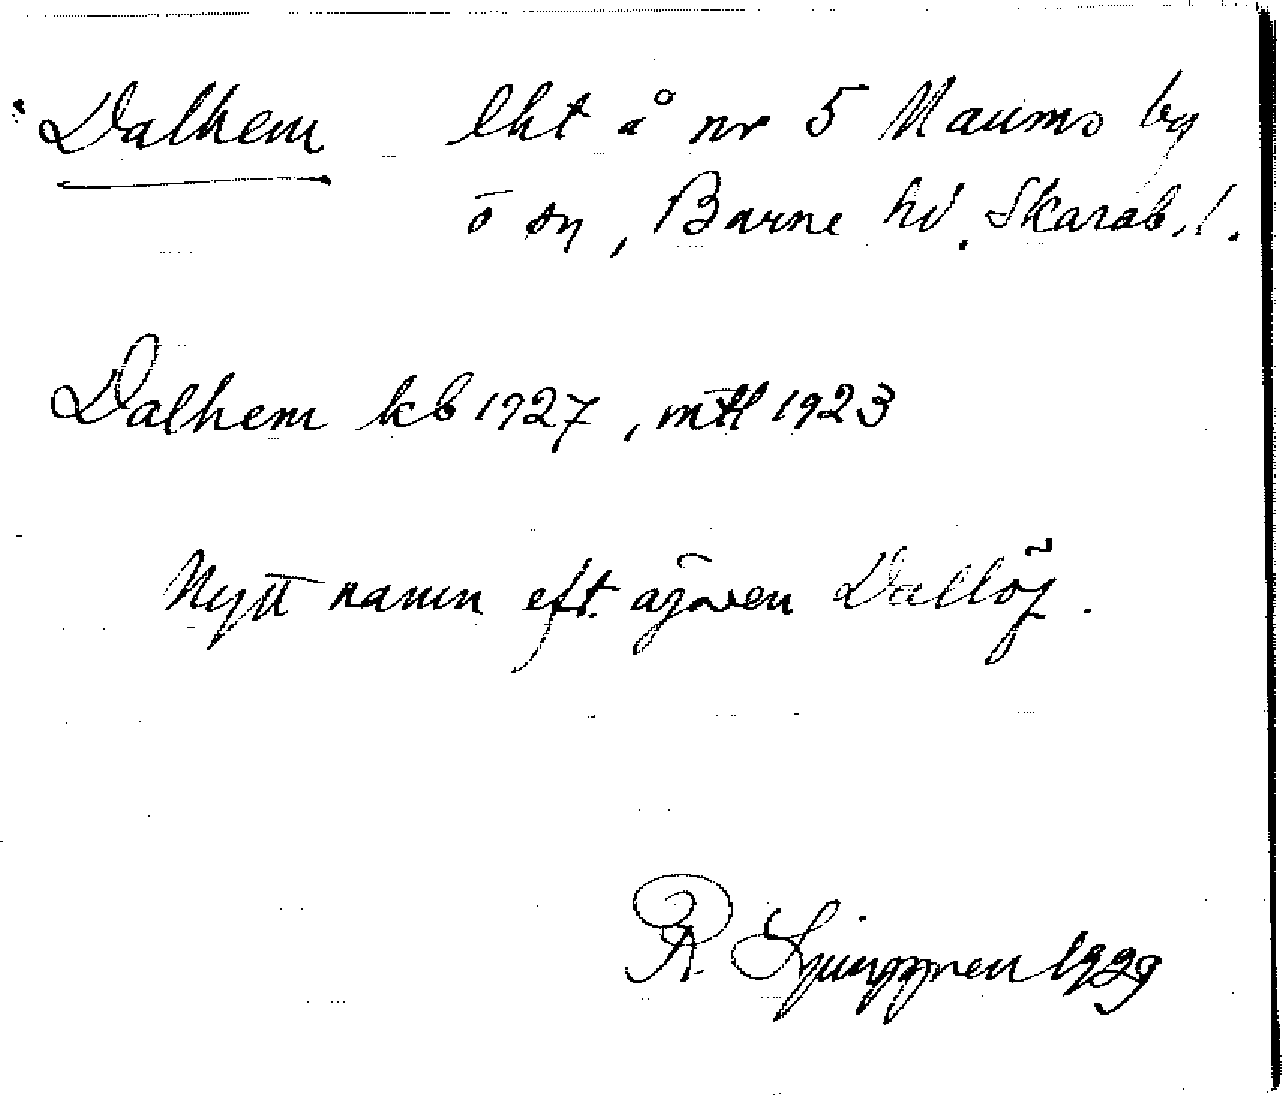 Dalhem lht å nr 5 Maums by
o sn, Barne hd. Skarab. l.
Dalhem kb 1927, mtl 1923
Nytt namn eft. ägaren Dallöf.
R. Ljunggren 1929